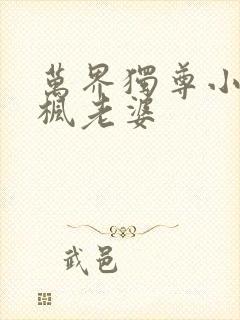 萬界獨尊小
楓老婆
武邑